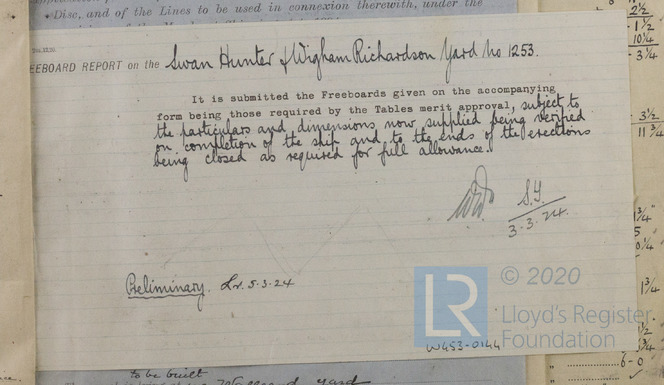 Disc, and of the Lines to be used in connexion therewith, under the
EEBOARD REPORT on the Swan Hunter & Wigham Richardson Yard No 1253.
It is submitted the Freeboards given on the accompanying
form being those required by the Tables merit approval, subject to
the particulars and dimensions now supplied being verified
on completion of the ship and to the ends of the erections
being closed as required for full allowance.
S.Y.
3.3.24.
Preliminary. Lr. 5.3.24
LR
© 2020
Lloyd's Register
Foundation
W453-0144
to be built
yard
2½
1½
10¼
3¼
3½
11¾
1¾
5
0¼
1¾
6-0